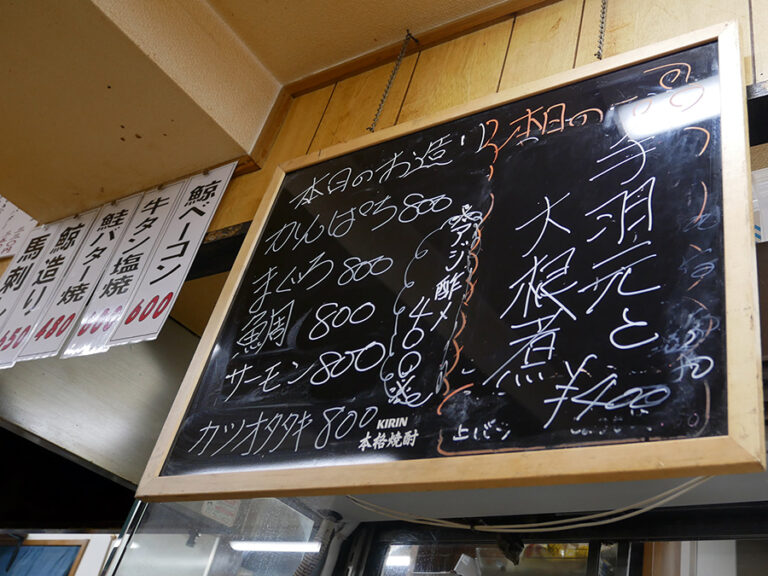 本日のお造り
かんぱち 800
まぐろ 800
鯛 800
サーモン 800
カツオタタキ 800
アジ酢〆
400
KIRIN
本格焼酎
本日の
手羽元と
大根煮
¥400
鯨ベーコン
牛タン塩焼 600
鮭バター焼
鯨造り 480
馬刺し